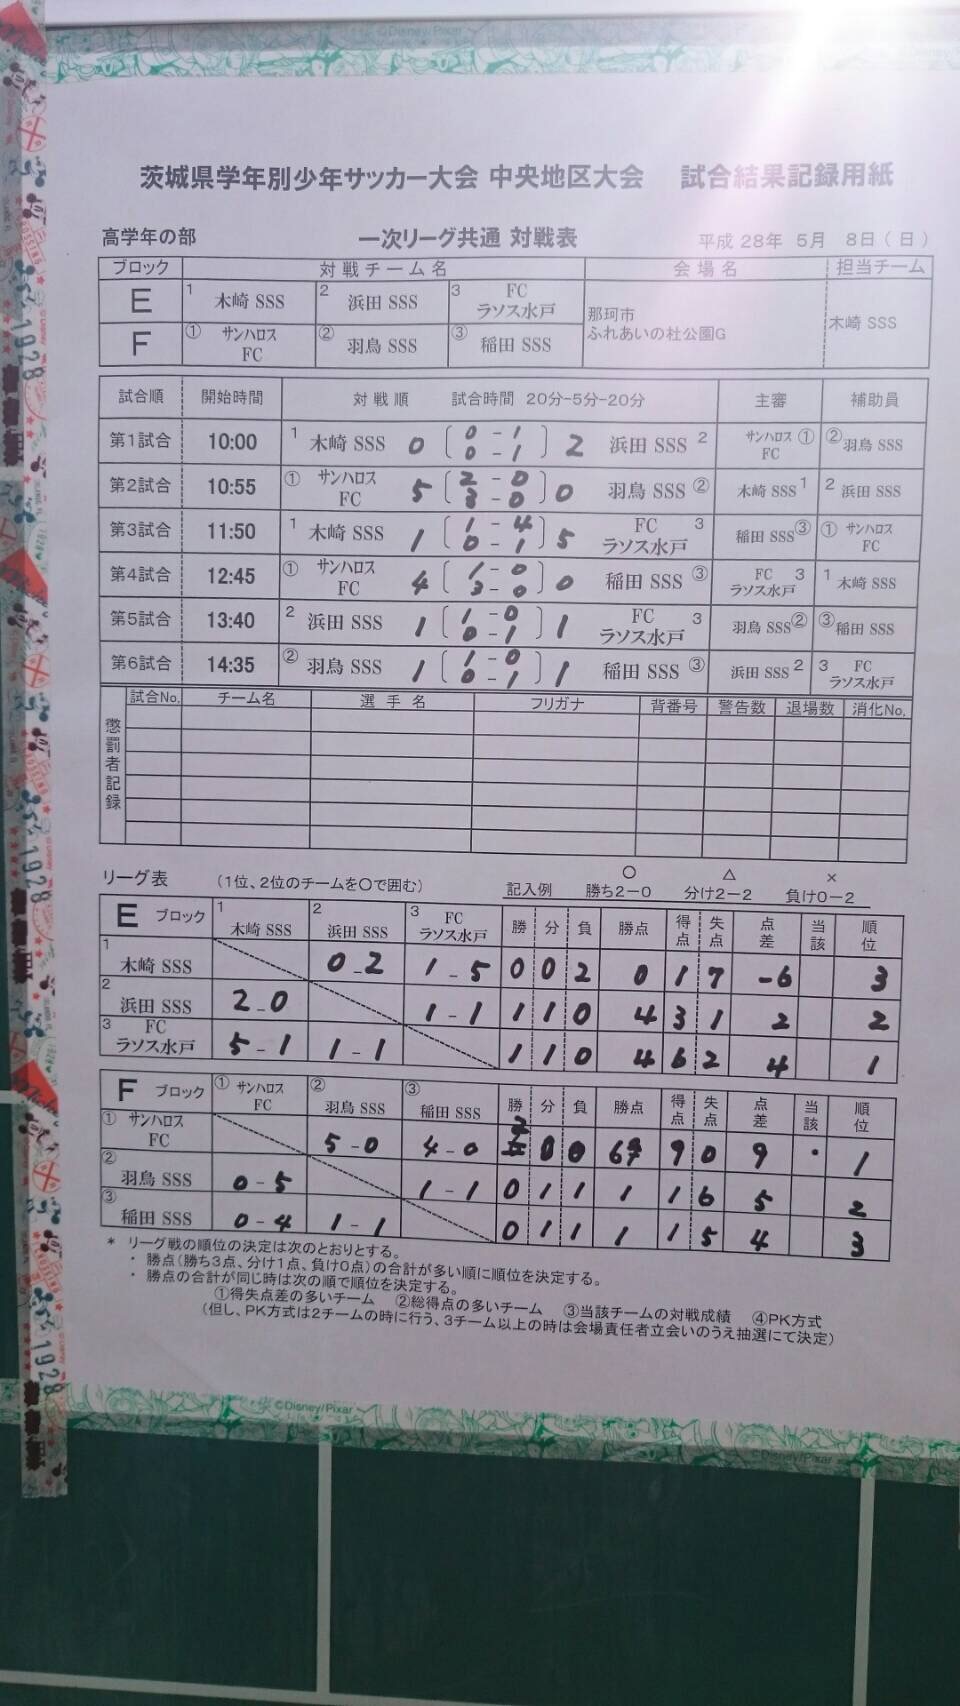 ©Disney/Pixar
茨城県学年別少年サッカー大会 中央地区大会 試合結果記録用紙
高学年の部 一次リーグ共通 対戦表 平成 28年 5月 8日(日)
ブロック 対戦チーム名 会場名 担当チーム
E 1 木崎 SSS 2 浜田 SSS 3 FC ラソス水戸 那珂市 ふれあいの杜公園G 木崎 SSS
F ① サンハロス FC ② 羽鳥 SSS ③ 稲田 SSS
試合順 開始時間 対戦順 試合時間 20分-5分-20分 主審 補助員
第1試合 10:00 1 木崎 SSS 0 (0-1 0-1) 2 浜田 SSS 2 サンハロス FC ① ② 羽鳥 SSS
第2試合 10:55 ① サンハロス FC 5 (2-0 3-0) 0 羽鳥 SSS ② 木崎 SSS 1 2 浜田 SSS
第3試合 11:50 1 木崎 SSS 1 (1-4 0-1) 5 FC ラソス水戸 3 稲田 SSS ③ ① サンハロス FC
第4試合 12:45 ① サンハロス FC 4 (1-0 3-0) 0 稲田 SSS ③ FC ラソス水戸 3 1 木崎 SSS
第5試合 13:40 2 浜田 SSS 1 (1-0 0-1) 1 FC ラソス水戸 3 羽鳥 SSS ② ③ 稲田 SSS
第6試合 14:35 ② 羽鳥 SSS 1 (1-0 0-1) 1 稲田 SSS ③ 浜田 SSS 2 3 FC ラソス水戸
懲罰者記録 試合No. チーム名 選手名 フリガナ 背番号 警告数 退場数 消化No.
リーグ表 (1位、2位のチームを〇で囲む) 記入例 〇 勝ち2-0 △ 分け2-2 × 負け0-2
E ブロック 1 木崎 SSS 2 浜田 SSS 3 FC ラソス水戸 勝 分 負 勝点 得点 失点 点差 当該 順位
1 木崎 SSS 0-2 1-5 0 0 2 0 1 7 -6 3
2 浜田 SSS 2-0 1-1 1 1 0 4 3 1 2 2
3 FC ラソス水戸 5-1 1-1 1 1 0 4 6 2 4 1
F ブロック ① サンハロス FC ② 羽鳥 SSS ③ 稲田 SSS 勝 分 負 勝点 得点 失点 点差 当該 順位
① サンハロス FC 5-0 4-0 2 0 0 6 9 0 9 1
② 羽鳥 SSS 0-5 1-1 0 1 1 1 1 6 5 2
③ 稲田 SSS 0-4 1-1 0 1 1 1 1 5 4 3
* リーグ戦の順位の決定は次のとおりとする。
・ 勝点(勝ち3点、分け1点、負け0点)の合計が多い順に順位を決定する。
・ 勝点の合計が同じ時は次の順で順位を決定する。
①得失点差の多いチーム ②総得点の多いチーム ③当該チームの対戦成績 ④PK方式
(但し、PK方式は2チームの時に行う、3チーム以上の時は会場責任者立会いのうえ抽選にて決定)
©Disney/Pixar
©Disney/Pixar
1928
1928
1928
1928